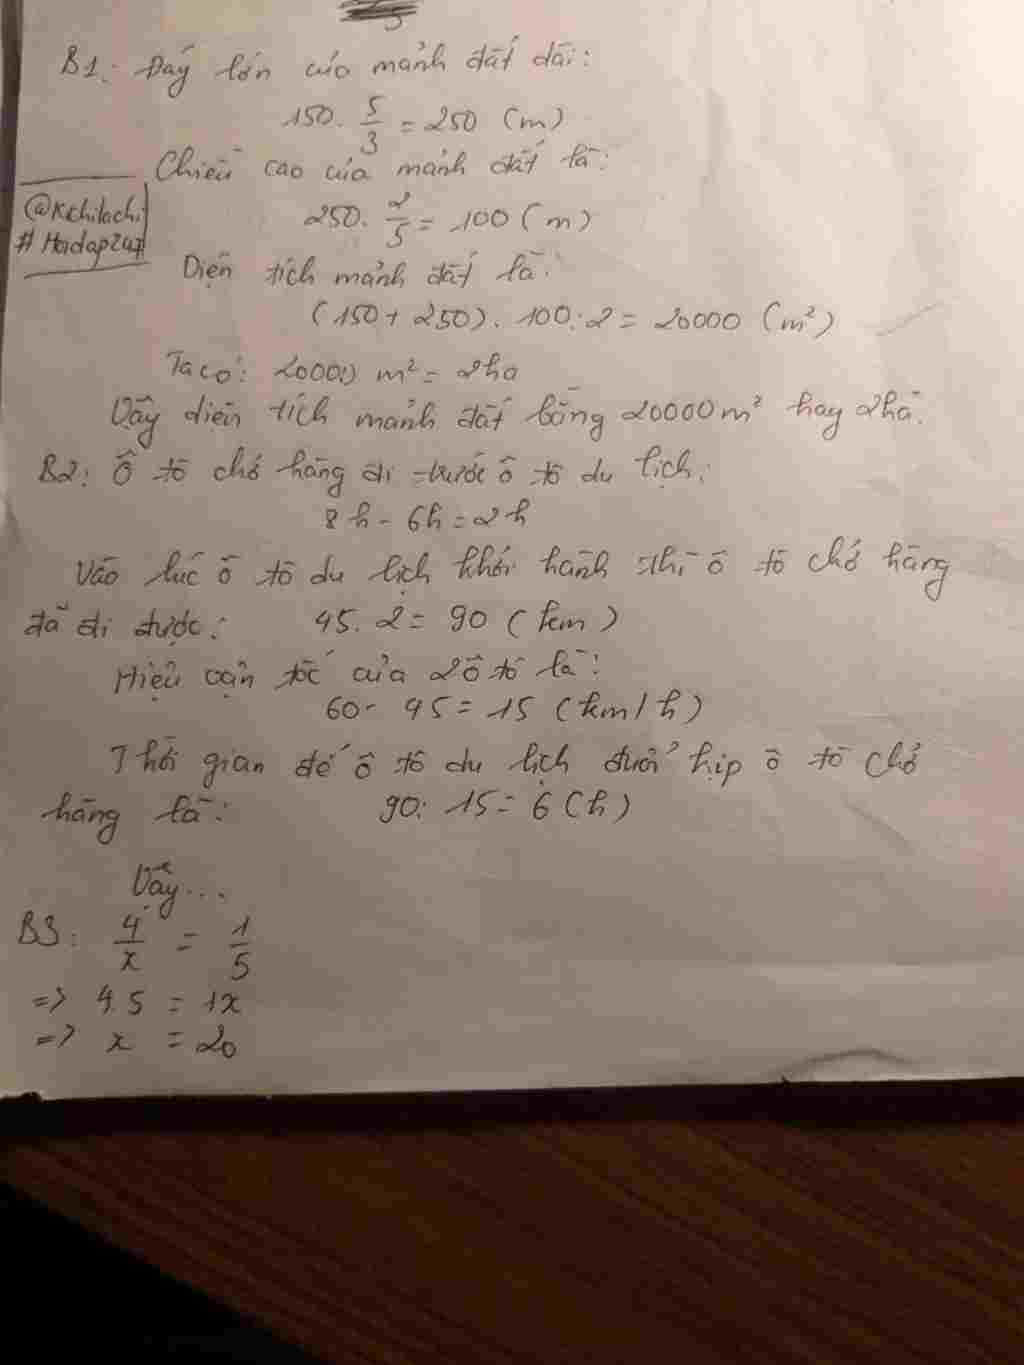 B1: Đáy lớn của mảnh đất dài:
150. 5/3 = 250 (m)
Chiều cao của mảnh đất là:
250. 2/5 = 100 (m)
@Kchitachi
# Hoidap247
Diện tích mảnh đất là:
(150 + 250). 100:2 = 20000 (m²)
Ta có: 20000 m² = 2ha
Vậy diện tích mảnh đất bằng 20000m² hay 2ha.
B2: Ô tô chở hàng đi trước ô tô du lịch:
8h - 6h = 2h
Vào lúc ô tô du lịch khởi hành thì ô tô chở hàng
đã đi được: 45. 2 = 90 (km)
Hiệu vận tốc của 2 ô tô là:
60 - 45 = 15 (km/h)
Thời gian để ô tô du lịch đuổi kịp ô tô chở
hàng là: 90: 15 = 6 (h)
Vậy...
B3: 4/x = 1/5
=> 4.5 = 1x
=> x = 20